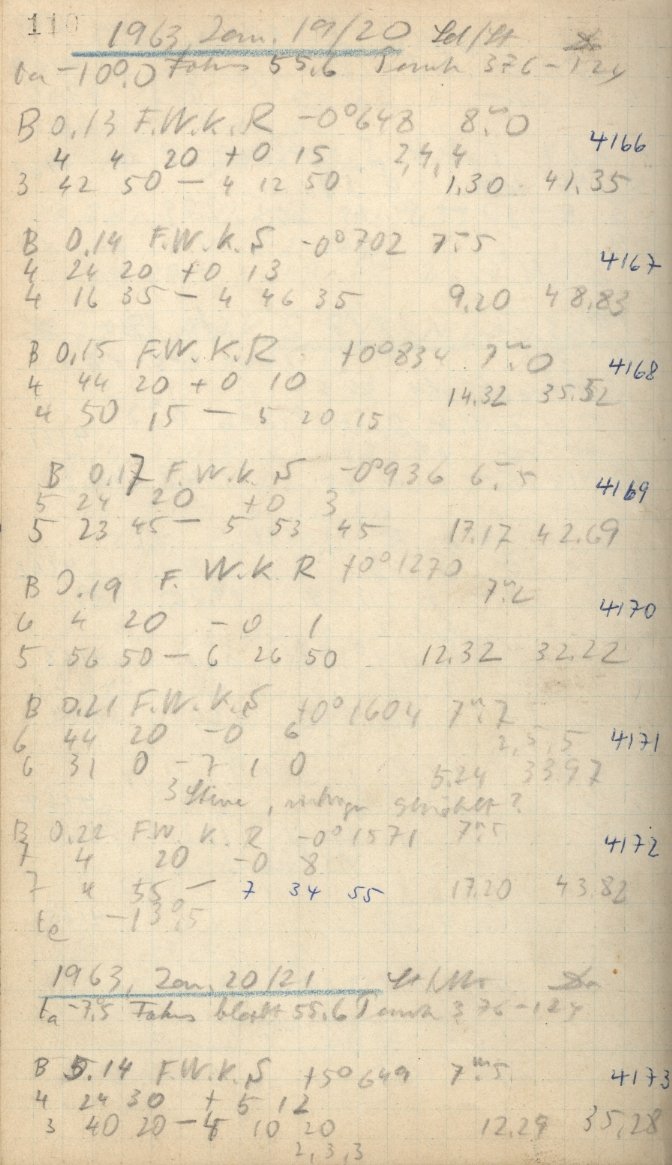 110 1963, Jan. 19/20
ta -10°,0 Fokus 55,6 376-124
B 0,13 F.W.K.R -0°648 8m,0 4166
4 4 20 +0 15 2,4,4
3 42 50 - 4 12 50 1,30 41,35
B 0.14 F.W.K.S -0°702 7m,5
4 24 20 +0 13 4167
4 16 35 - 4 46 35 9.20 48,83
B 0,15 F.W.K.R +0°834 7m,0 4168
4 44 20 +0 10 14.32 35.52
4 50 15 - 5 20 15
B 0.17 F.W.K.S -0°936 6m,5 4169
5 24 20 +0 3
5 23 45 - 5 53 45 17.17 42.69
B 0.19 F.W.K.R +0°1270 7m,2 4170
6 4 20 -0 1
5 56 50 - 6 26 50 12.32 32.22
B 0.21 F.W.K.S +0°1604 7m,7
6 44 20 -0 6 2,5,5 4171
6 31 0 - 7 1 0 5.24 33.97
3 Sterne,
B 0.22 F.W.K.R -0°1571 7m,5 4172
7 4 20 -0 8
7 4 55 - 7 34 55 17.20 43.82
te -13°,5
1963, Jan. 20/21
ta -7,5 Fokus bleibt 55,6 376-124
B 5.14 F.W.K.S +5°649 7m,5 4173
4 24 30 +5 12
3 40 20 - 4 10 20 12.29 35,28
2,3,3